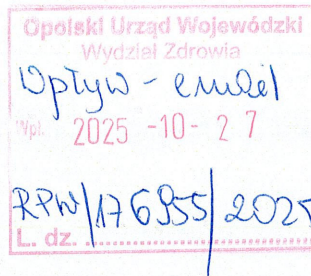 Opolski Urząd Wojewódzki
Wydział Zdrowia
Wpływ - email
Wpł. 2025 -10- 27
RPW/176955/2025
L. dz.